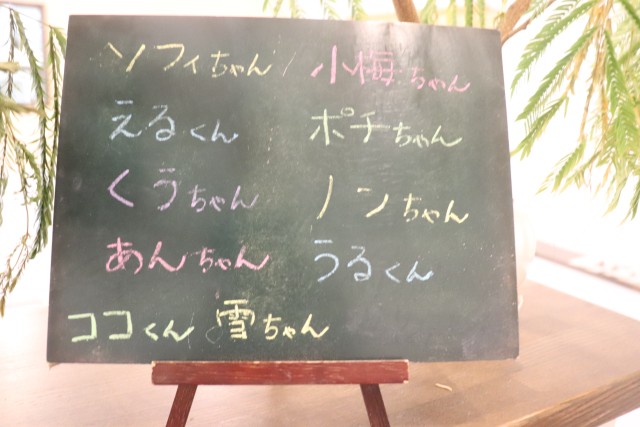 ソフィちゃん / 小梅ちゃん
えるくん ポチちゃん
くうちゃん ノンちゃん
あんちゃん うるくん
ココくん 雪ちゃん